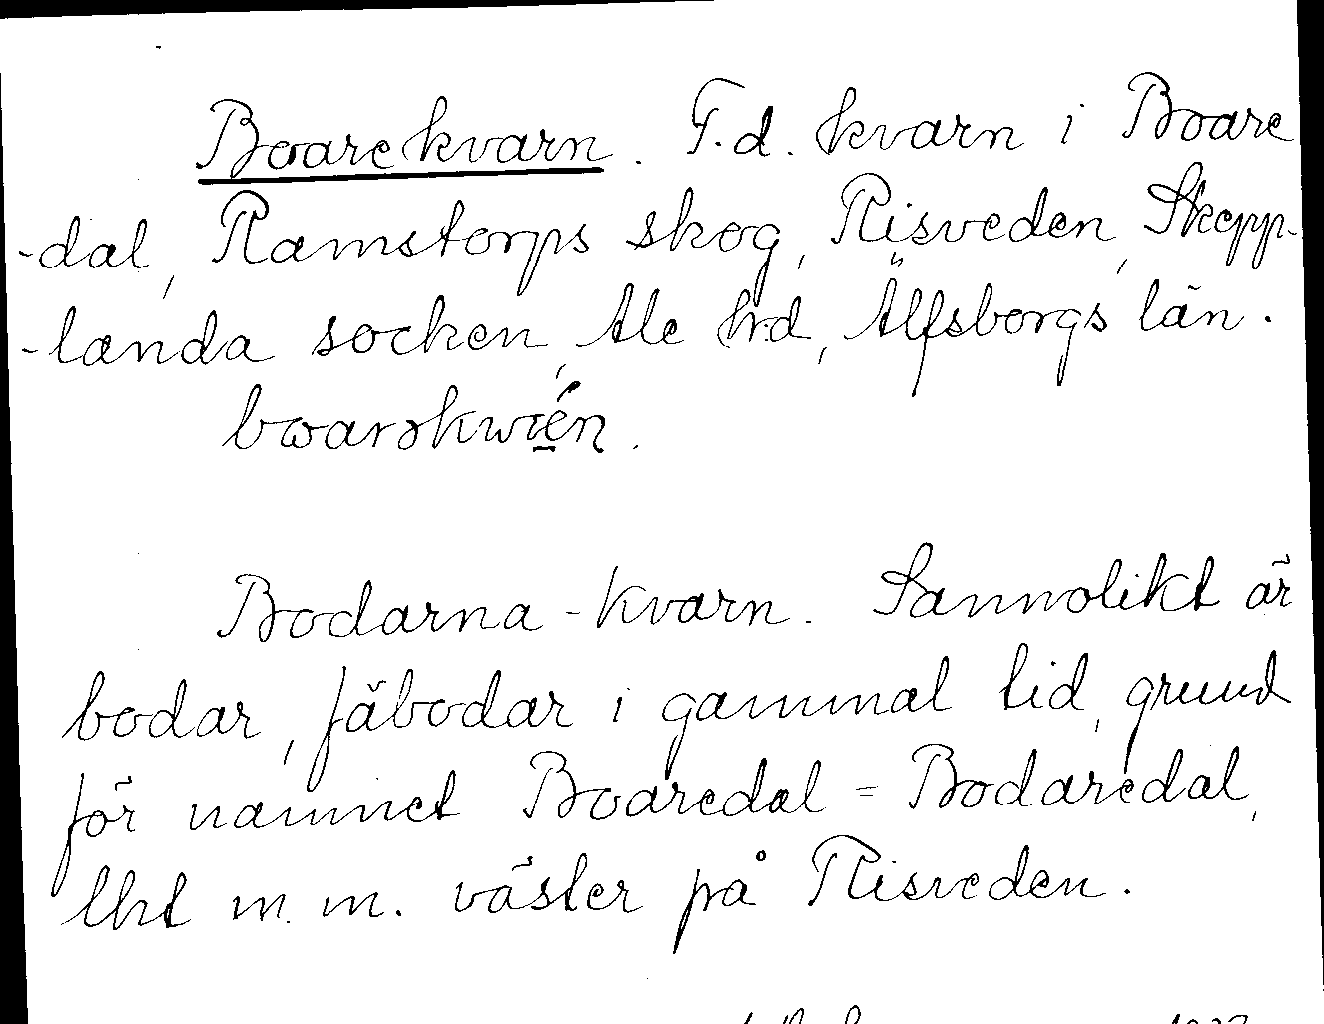 Boarekvarn. F.d. kvarn i Boare
-dal, Ramstorps skog, Risveden, Skepp-
-landa socken, Ale hd, Älfsborgs län.
Bodarna-kvarn. Sannolikt är
bodar, fäbodar i gammal tid, grund
för namnet Boaredal = Bodaredal,
lht m. m. väster på Risveden.